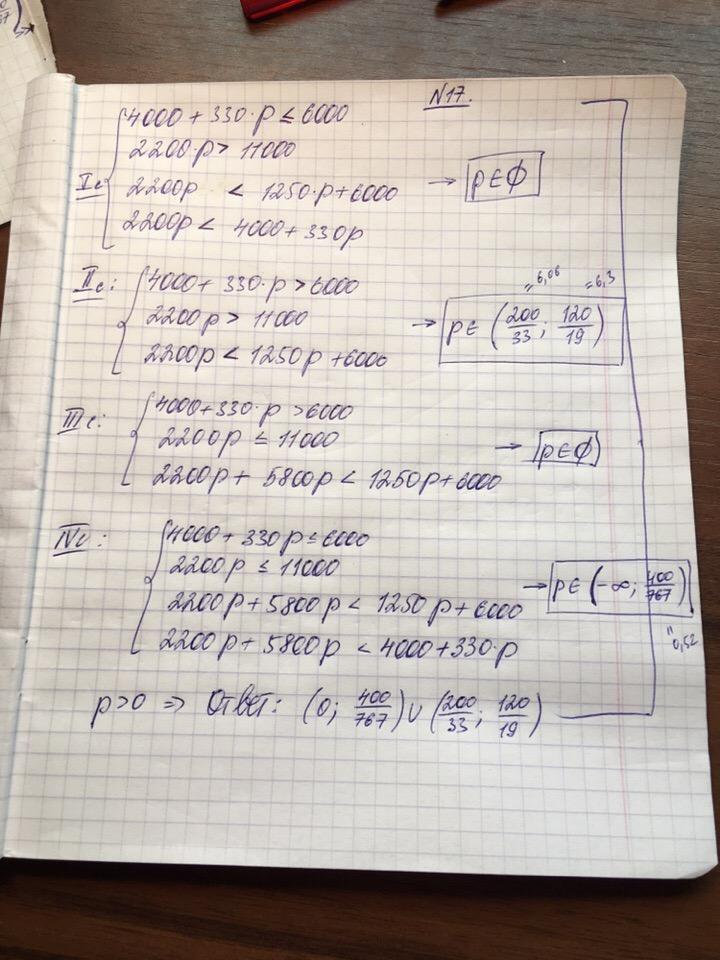 N17.
Iс { 4000 + 330·p ≤ 6000
2200·p > 11000
2200p < 1250·p+6000 → p∈∅
2200p < 4000+330p
IIс: { 4000+ 330·p > 6000
2200p > 11000 → p∈ (200/33 ; 120/19) "6,06 =6,3
2200p < 1250p+6000
IIIс: { 4000+330·p > 6000
2200p ≤ 11000 → p∈∅
2200p + 5800p < 1250p+6000
IVс: { 4000+330p ≤ 6000
2200p ≤ 11000
2200p+5800p < 1250p+6000 → p∈ (-∞; 400/767) "0,52
2200p+5800p < 4000+330·p
p>0 ⇒ Ответ: (0; 400/767) ∪ (200/33 ; 120/19)